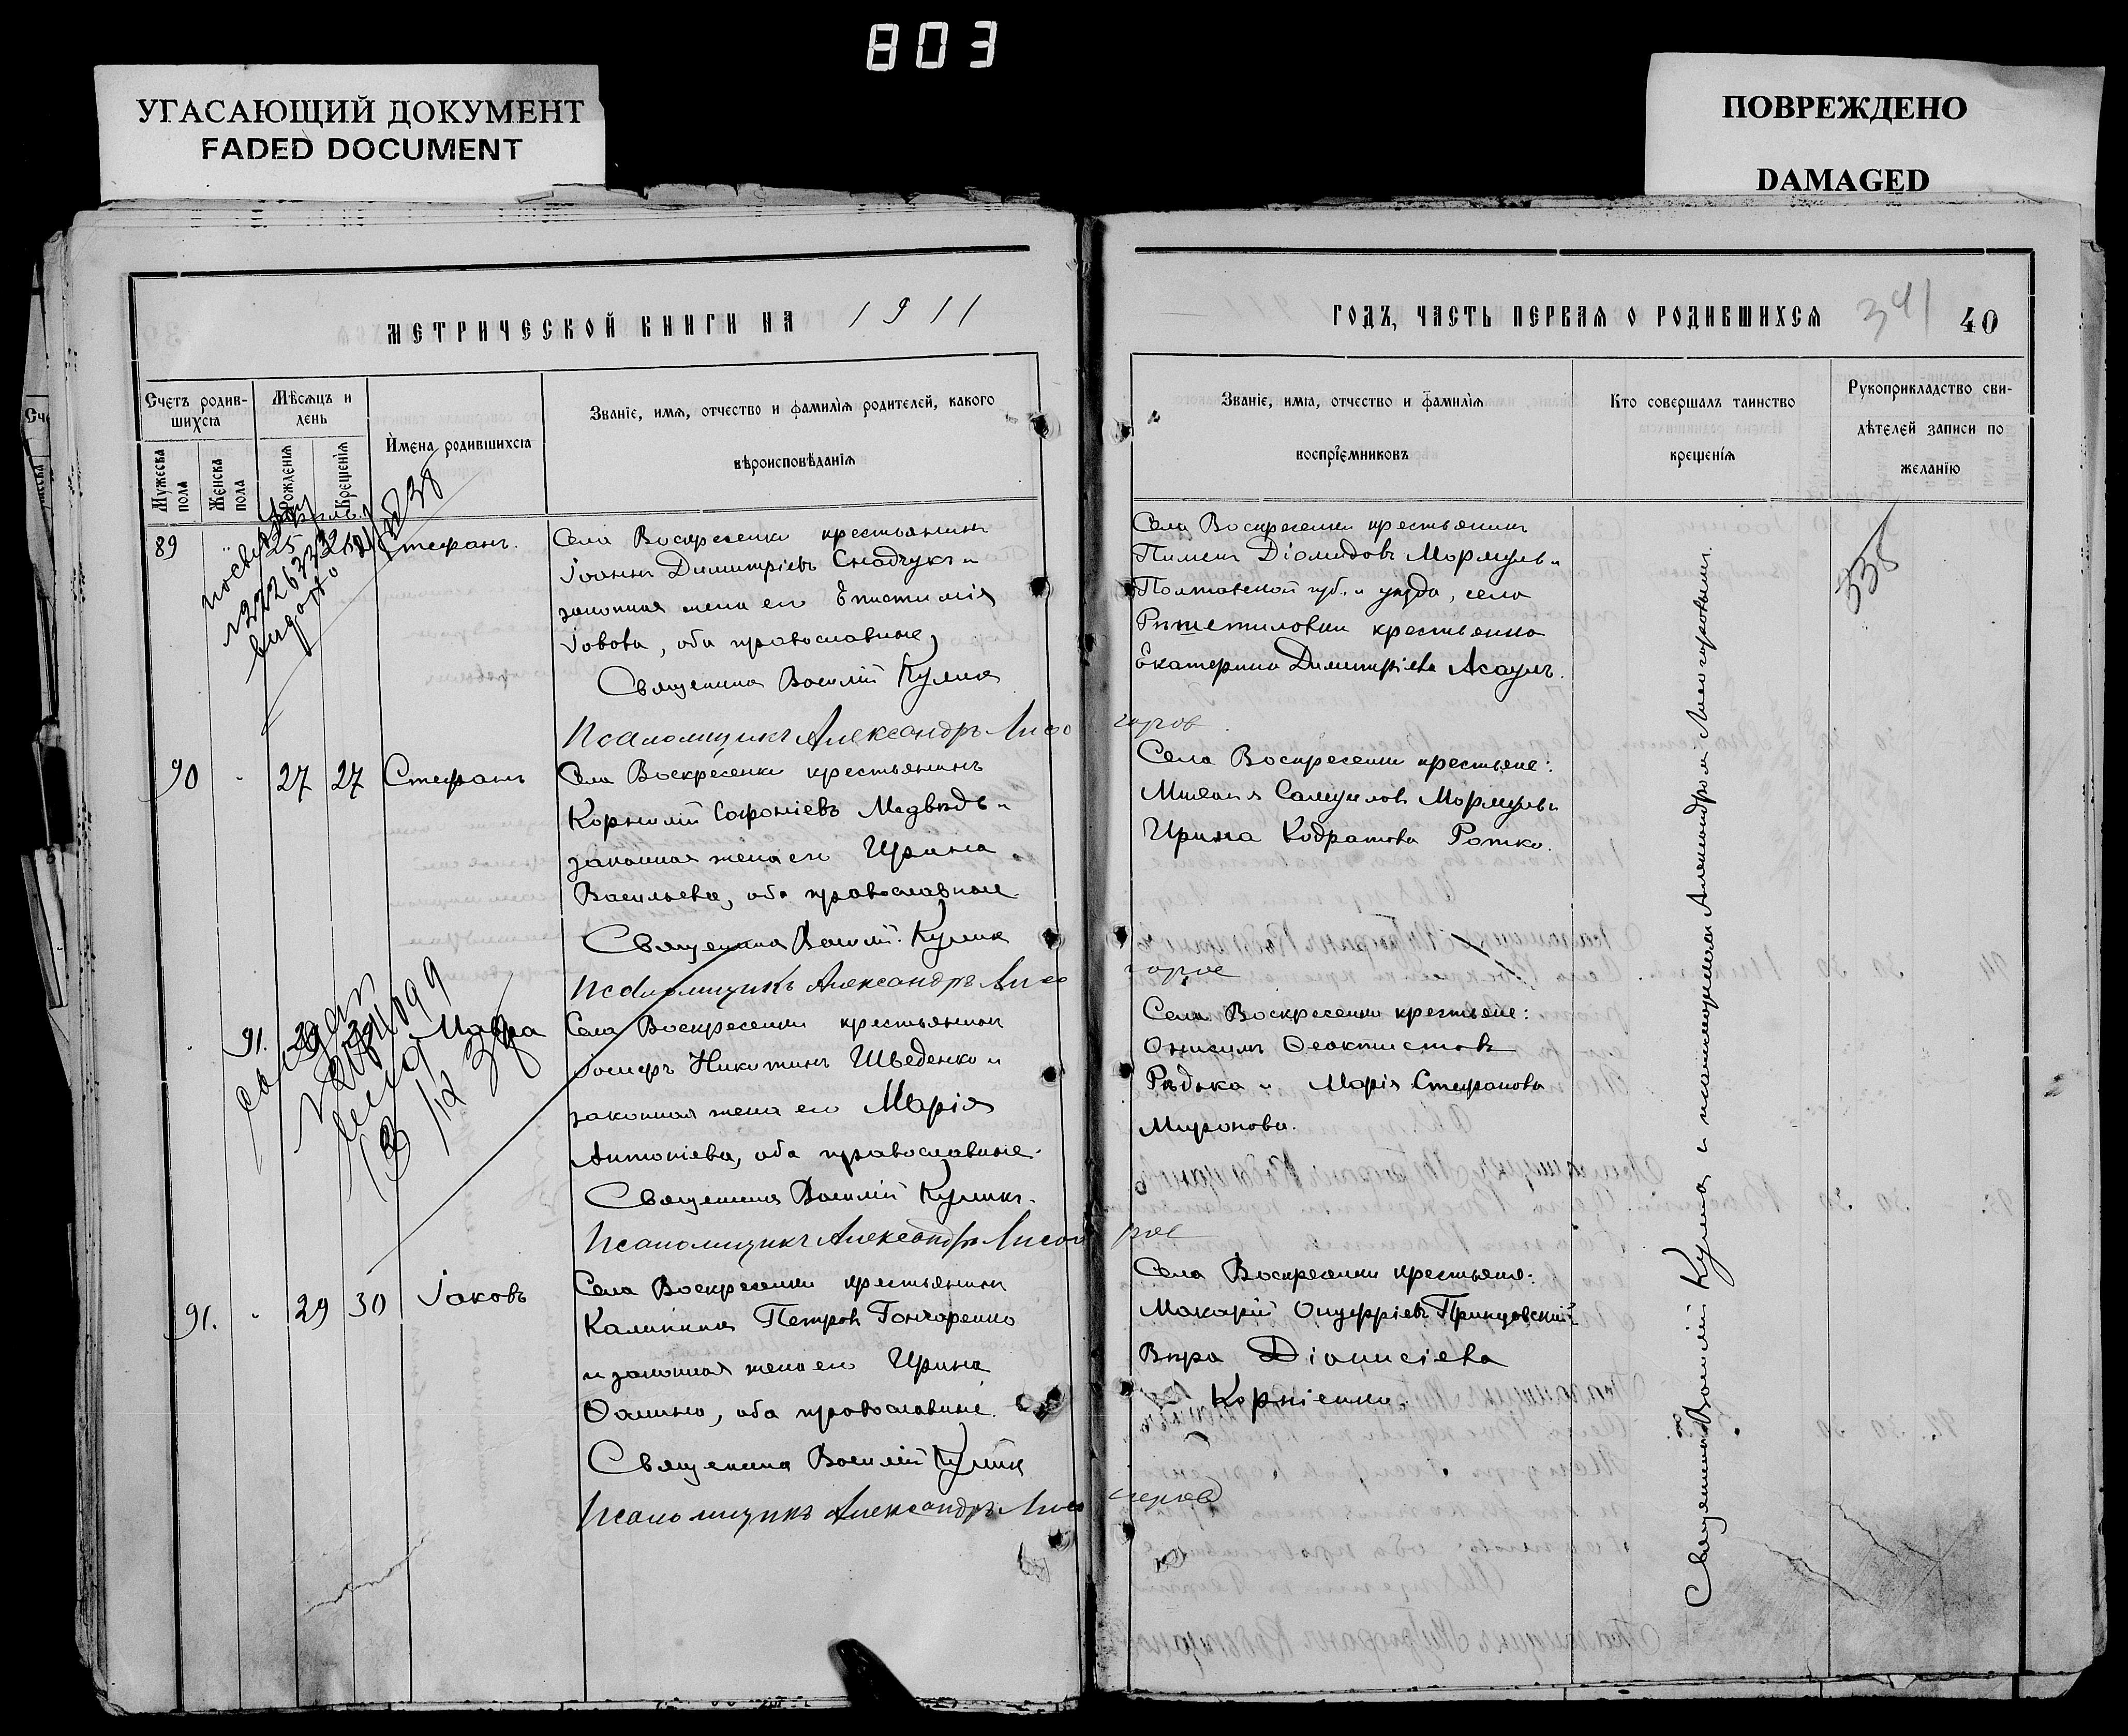 803
УГАСАЮЩИЙ ДОКУМЕНТ
FADED DOCUMENT
ПОВРЕЖДЕНО
DAMAGED
МЕТРИЧЕСКОЙ КНИГИ НА 1911
Счетъ родившихся
Мѣсяцъ и день
Имена родившихся
Званіе, имя, отчество и фамилія родителей, какого
вѣроисповѣданія
Мужеска пола
Женска пола
Рожденія
Крещенія
89
Стефанъ.
Села Воскресенки крестьянинъ
Іоаннъ Димитріевъ Снадчукъ и
законная жена его Епистимія
Іовова, оба православные,
Священникъ Василій Куликъ
Псаломщикъ Александръ Лисогоров
90 27 27 Стефанъ
Села Воскресенки крестьянинъ
Корнилій Софоніевъ Медвѣдь и
законная жена его Ирина
Васильева, оба православные
Священникъ Василій Куликъ
Псаломщикъ Александръ Лисогоров
91. 29 Мавра
Села Воскресенки крестьянинъ
Іосифъ Никитинъ Шведенко и
законная жена его Марія
Антоніева, оба православные.
Священникъ Василій Куликъ.
Псаломщикъ Александръ Лисогоров
91. 29 30 Іаковъ
Села Воскресенки крестьянинъ
Калиникъ Петровъ Гончаренко
и законная жена его Ирина
Ѳомина, оба православные.
Священникъ Василій Куликъ
Псаломщикъ Александръ Лисогоров
ГОДЪ, ЧАСТЬ ПЕРВАЯ О РОДИВШИХСЯ
341
40
Званіе, имя, отчество и фамилія
воспріемниковъ
Кто совершалъ таинство
крещенія
Рукоприкладство сви-
дѣтелей записи по
желанію
Села Воскресенки крестьянинъ
Пименъ Діомидовъ Мормуль и
Полтавской губ. и уѣзда, села
крестьянка
Екатерина Димитріева Асаулъ.
338
Села Воскресенки крестьяне:
Самуилов Мормуль и
Ирина Кодратова Ротко.
Села Воскресенки крестьяне:
Онисимъ Ѳеоктистовъ
Рѣдька и Марія Стефанова
Миронова.
Села Воскресенки крестьяне:
Макарій Онуфріевъ
Вѣра Діонисіева
Корніенко.
Священникъ Василій Куликъ и псаломщикомъ Александромъ Лисогоровымъ.